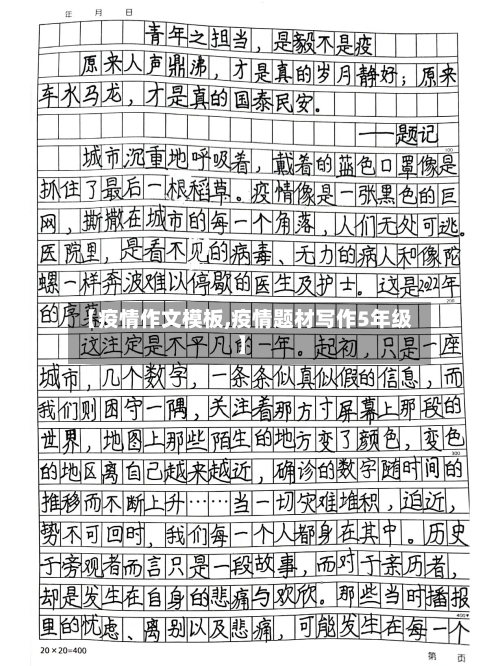 年 月 日
青年之担当，是毅不是疫
原来人声鼎沸，才是真的岁月静好；原来
车水马龙，才是真的国泰民安。
——题记
100
城市沉重地呼吸着，戴着的蓝色口罩像是
抓住了最后一根稻草。疫情像是一张黑色的巨
网，撕撒在城市的每一个角落，人们无处可逃。
医院里，是看不见的病毒、无力的病人和像陀
螺一样奔波难以停歇的医生及护士。这是2021年
200
的序幕
疫情作文模板,疫情题材写作5年级
这注定是不平凡的一年。起初，只是一座
城市，几个数字，一条条似真似假的信息，而
我们则困守一隅，关注着那方寸屏幕上那段的
世界，地图上那些陌生的地方变了颜色，变色
300
的地区离自己越来越近，确诊的数字随时间的
推移而不断上升……当一切灾难堆积，迫近，
势不可回时，我们每一个人都身在其中。历史
于旁观者而言只是一段故事，而对于亲历者，
却是发生在自身的悲痛与欢欣。那些当时播报
400
里的忧虑、离别以及悲痛，可能发生在每一个
20×20=400
第 页